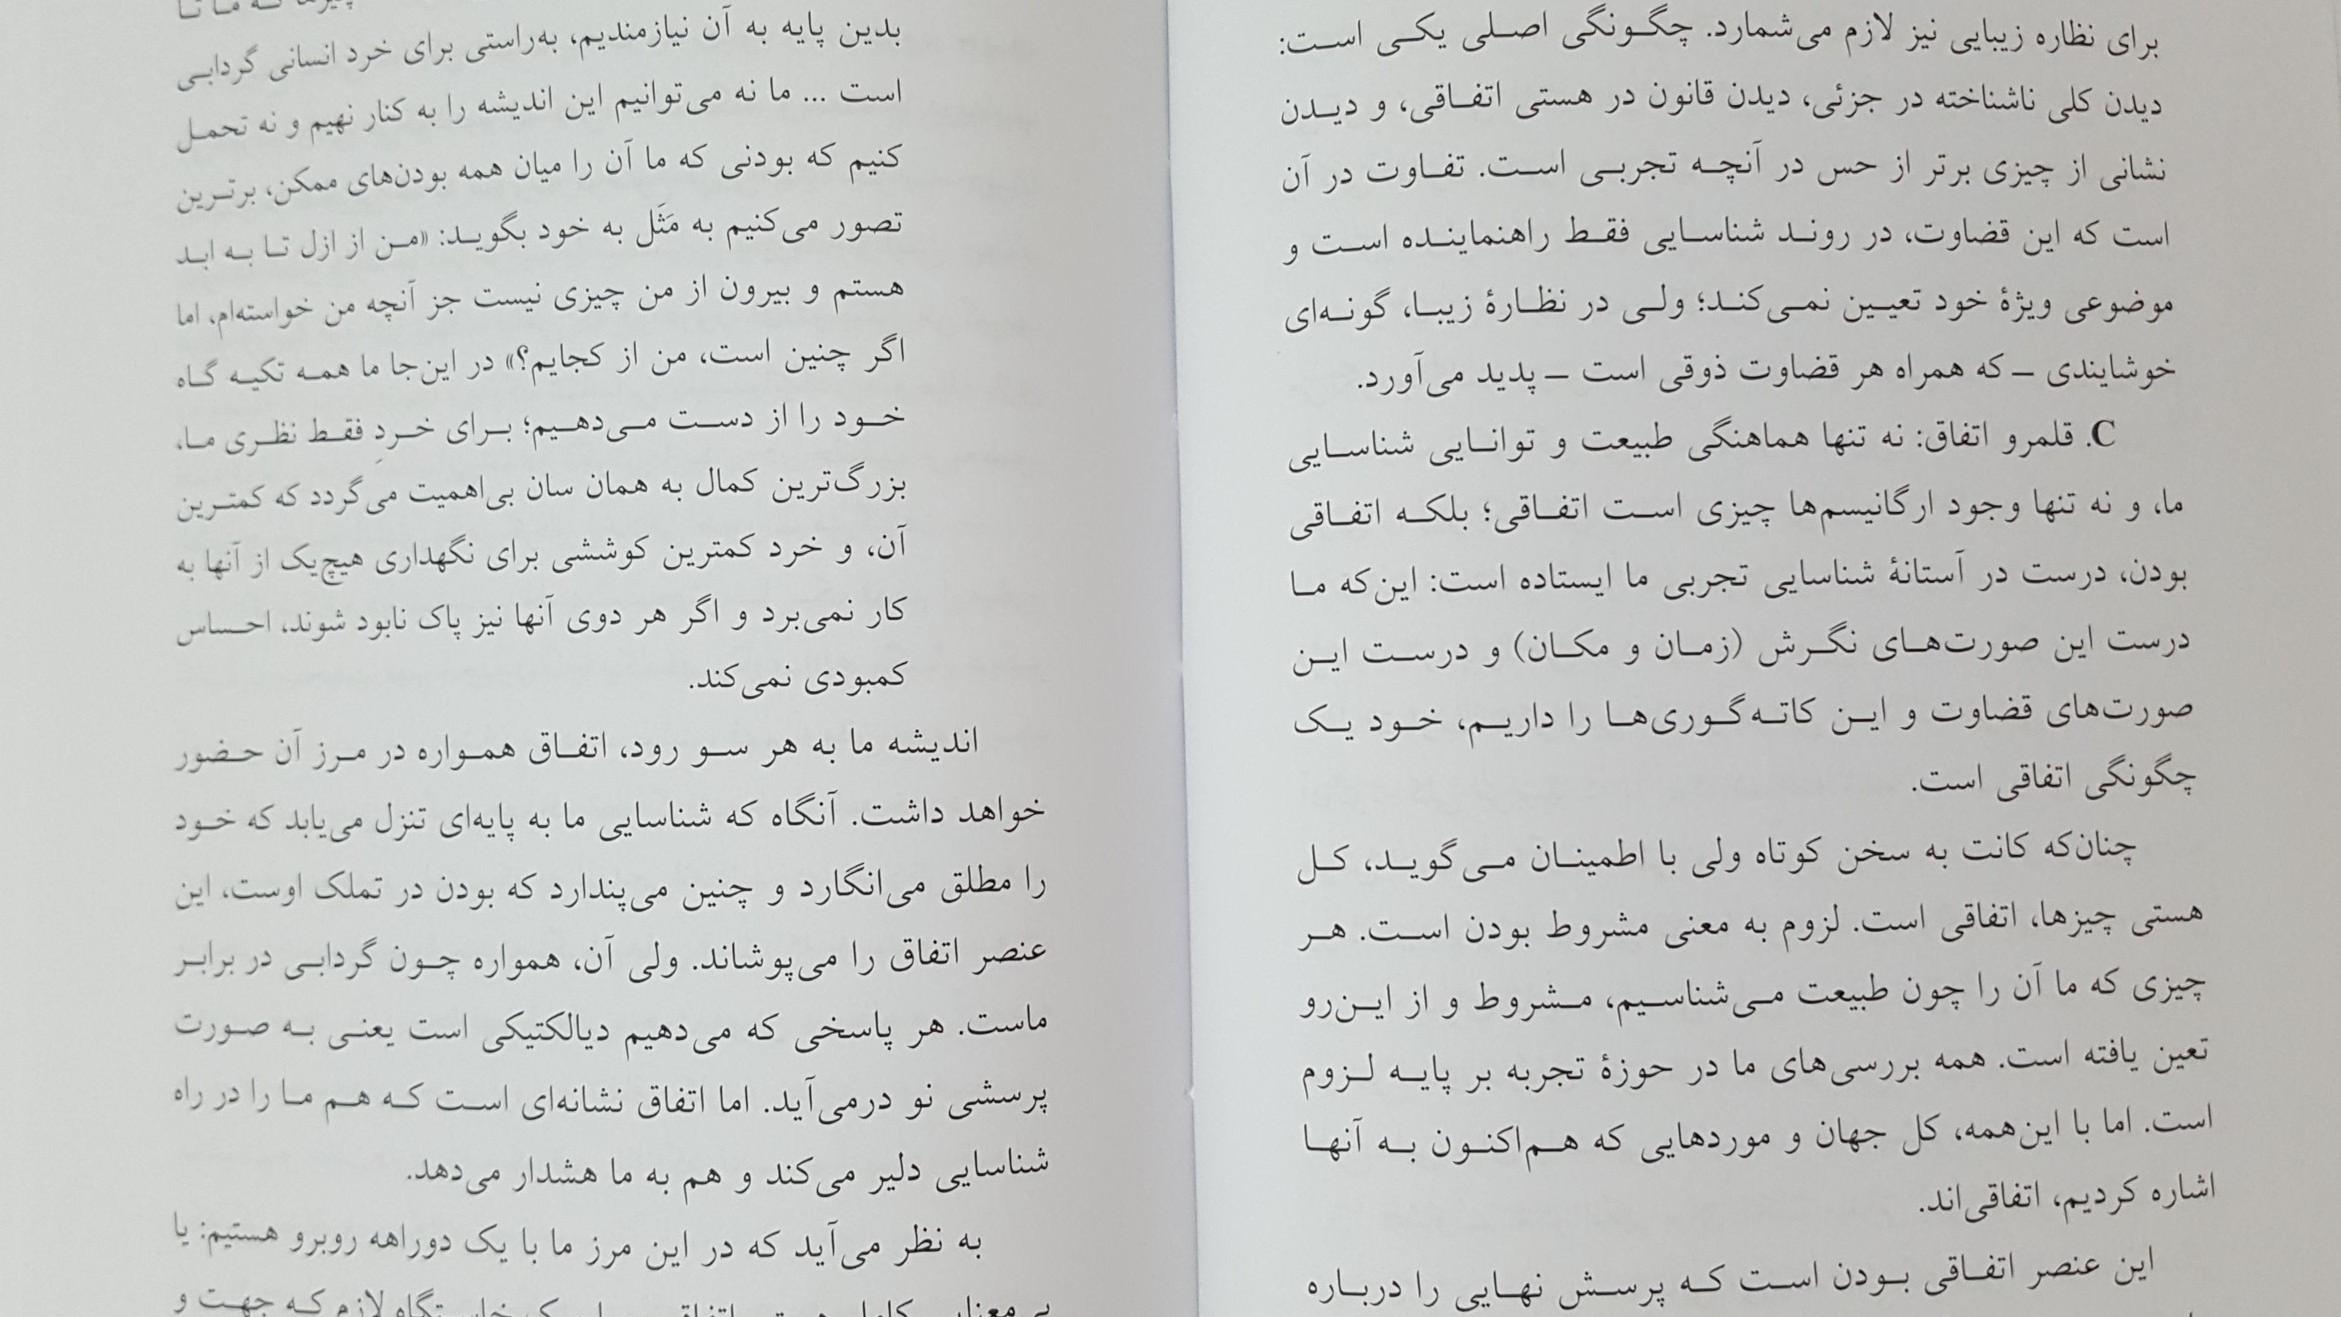 برای نظاره زیبایی نیز لازم می‌شمارد. چگونگی اصلی یکی است:
دیدن کلی ناشناخته در جزئی، دیدن قانون در هستی اتفاقی، و دیدن
نشانی از چیزی برتر از حس در آنچه تجربی است. تفاوت در آن
است که این قضاوت، در روند شناسایی فقط راهنماینده است و
موضوعی ویژهٔ خود تعیین نمی‌کند؛ ولی در نظارهٔ زیبا، گونه‌ای
خوشایندی ــ که همراه هر قضاوت ذوقی است ــ پدید می‌آورد.
C. قلمرو اتفاق: نه تنها هماهنگی طبیعت و توانایی شناسایی
ما، و نه تنها وجود ارگانیسم‌ها چیزی است اتفاقی؛ بلکه اتفاقی
بودن، درست در آستانهٔ شناسایی تجربی ما ایستاده است: این‌که ما
درست این صورت‌های نگرش (زمان و مکان) و درست این
صورت‌های قضاوت و این کاته‌گوری‌ها را داریم، خود یک
چگونگی اتفاقی است.
چنان‌که کانت به سخن کوتاه ولی با اطمینان می‌گوید، کل
هستی چیزها، اتفاقی است. لزوم به معنی مشروط بودن است. هر
چیزی که ما آن را چون طبیعت می‌شناسیم، مشروط و از این‌رو
تعین یافته است. همه بررسی‌های ما در حوزهٔ تجربه بر پایه لزوم
است. اما با این‌همه، کل جهان و موردهایی که هم‌اکنون به آنها
اشاره کردیم، اتفاقی‌اند.
این عنصر اتفاقی بودن است که پرسش نهایی را درباره
چیزها که ما تا
بدین پایه به آن نیازمندیم، به‌راستی برای خرد انسانی گردابی
است ... ما نه می‌توانیم این اندیشه را به کنار نهیم و نه تحمل
کنیم که بودنی که ما آن را میان همه بودن‌های ممکن، برترین
تصور می‌کنیم به مَثَل به خود بگوید: «من از ازل تا به ابد
هستم و بیرون از من چیزی نیست جز آنچه من خواسته‌ام، اما
اگر چنین است، من از کجایم؟» در این‌جا ما همه تکیه گاه
خود را از دست می‌دهیم؛ برای خردِ فقط نظری ما،
بزرگ‌ترین کمال به همان سان بی‌اهمیت می‌گردد که کمترین
آن، و خرد کمترین کوششی برای نگهداری هیچ‌یک از آنها به
کار نمی‌برد و اگر هر دوی آنها نیز پاک نابود شوند، احساس
کمبودی نمی‌کند.
اندیشه ما به هر سو رود، اتفاق همواره در مرز آن حضور
خواهد داشت. آنگاه که شناسایی ما به پایه‌ای تنزل می‌یابد که خود
را مطلق می‌انگارد و چنین می‌پندارد که بودن در تملک اوست، این
عنصر اتفاق را می‌پوشاند. ولی آن، همواره چون گردابی در برابر
ماست. هر پاسخی که می‌دهیم دیالکتیکی است یعنی به صورت
پرسشی نو درمی‌آید. اما اتفاق نشانه‌ای است که هم ما را در راه
شناسایی دلیر می‌کند و هم به ما هشدار می‌دهد.
به نظر می‌آید که در این مرز ما با یک دوراهه روبرو هستیم: یا
لازم که جهت و